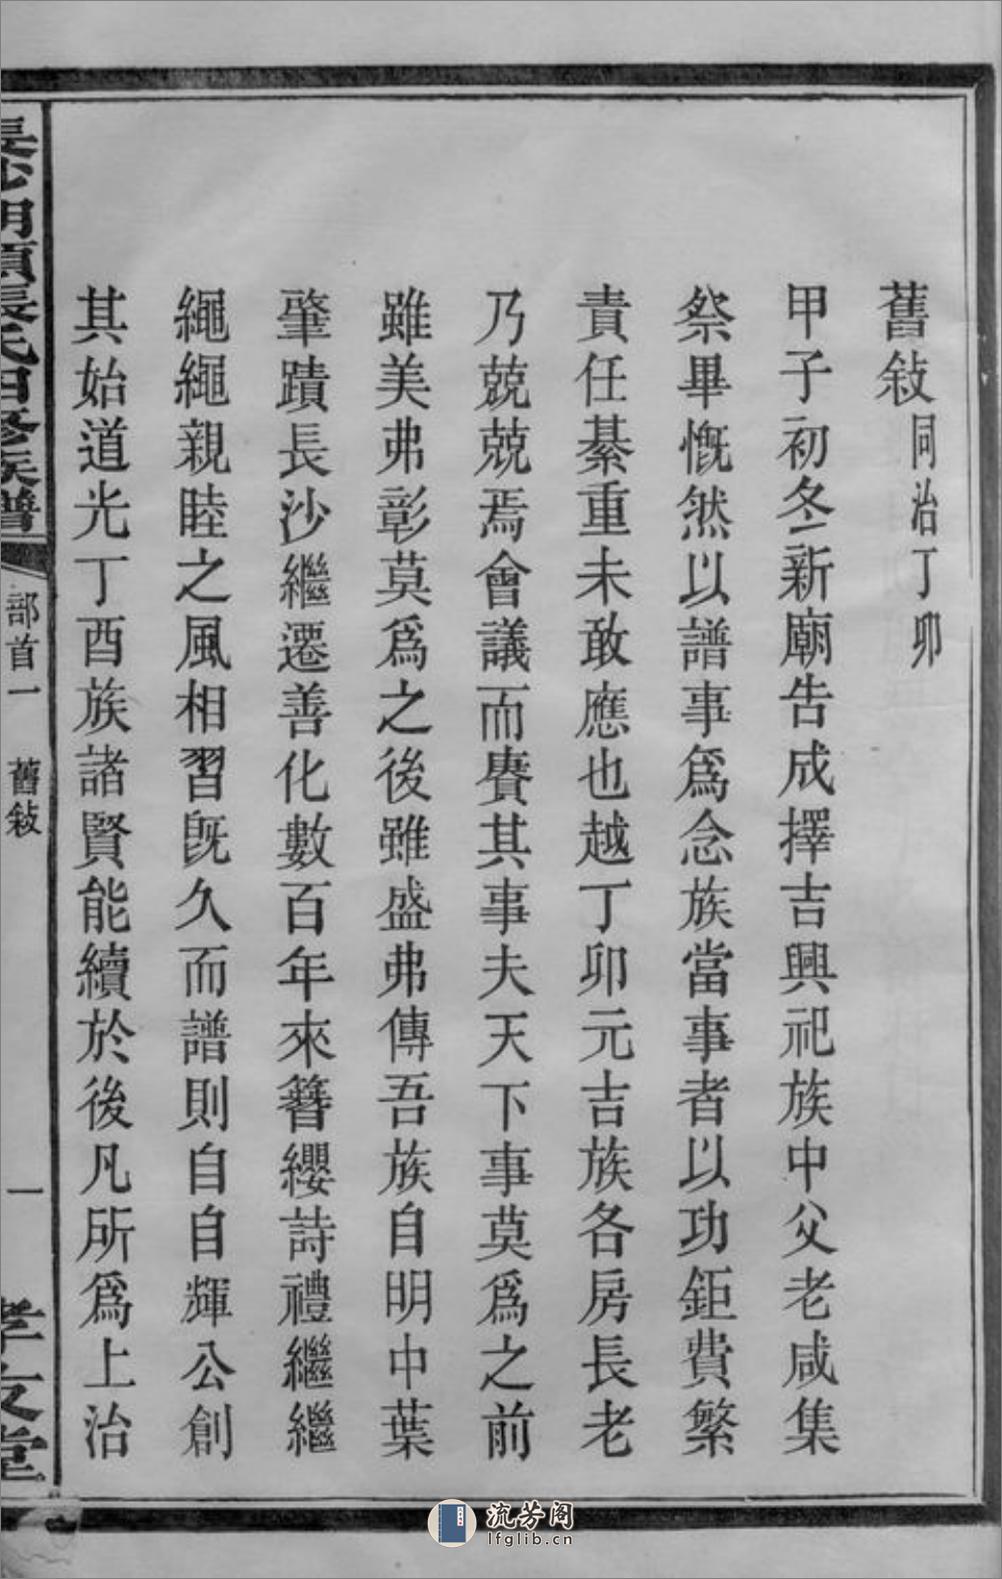 舊敍同治丁卯
甲子初冬新廟告成擇吉興祀族中父老咸集
祭畢慨然以譜事爲念族當事者以功鉅費繁
責任綦重未敢應也越丁卯元吉族各房長老
乃兢兢焉會議而賡其事夫天下事莫爲之前
雖美弗彰莫爲之後雖盛弗傳吾族自明中葉
肇蹟長沙繼遷善化數百年來簪纓詩禮繼繼
繩繩親睦之風相習旣久而譜則自自輝公創
其始道光丁酉族諸賢能續於後凡所爲上治
長沙明頂張氏四修族譜
部首一
舊敍
一
孝友堂
流芳阁
lfglib.cn